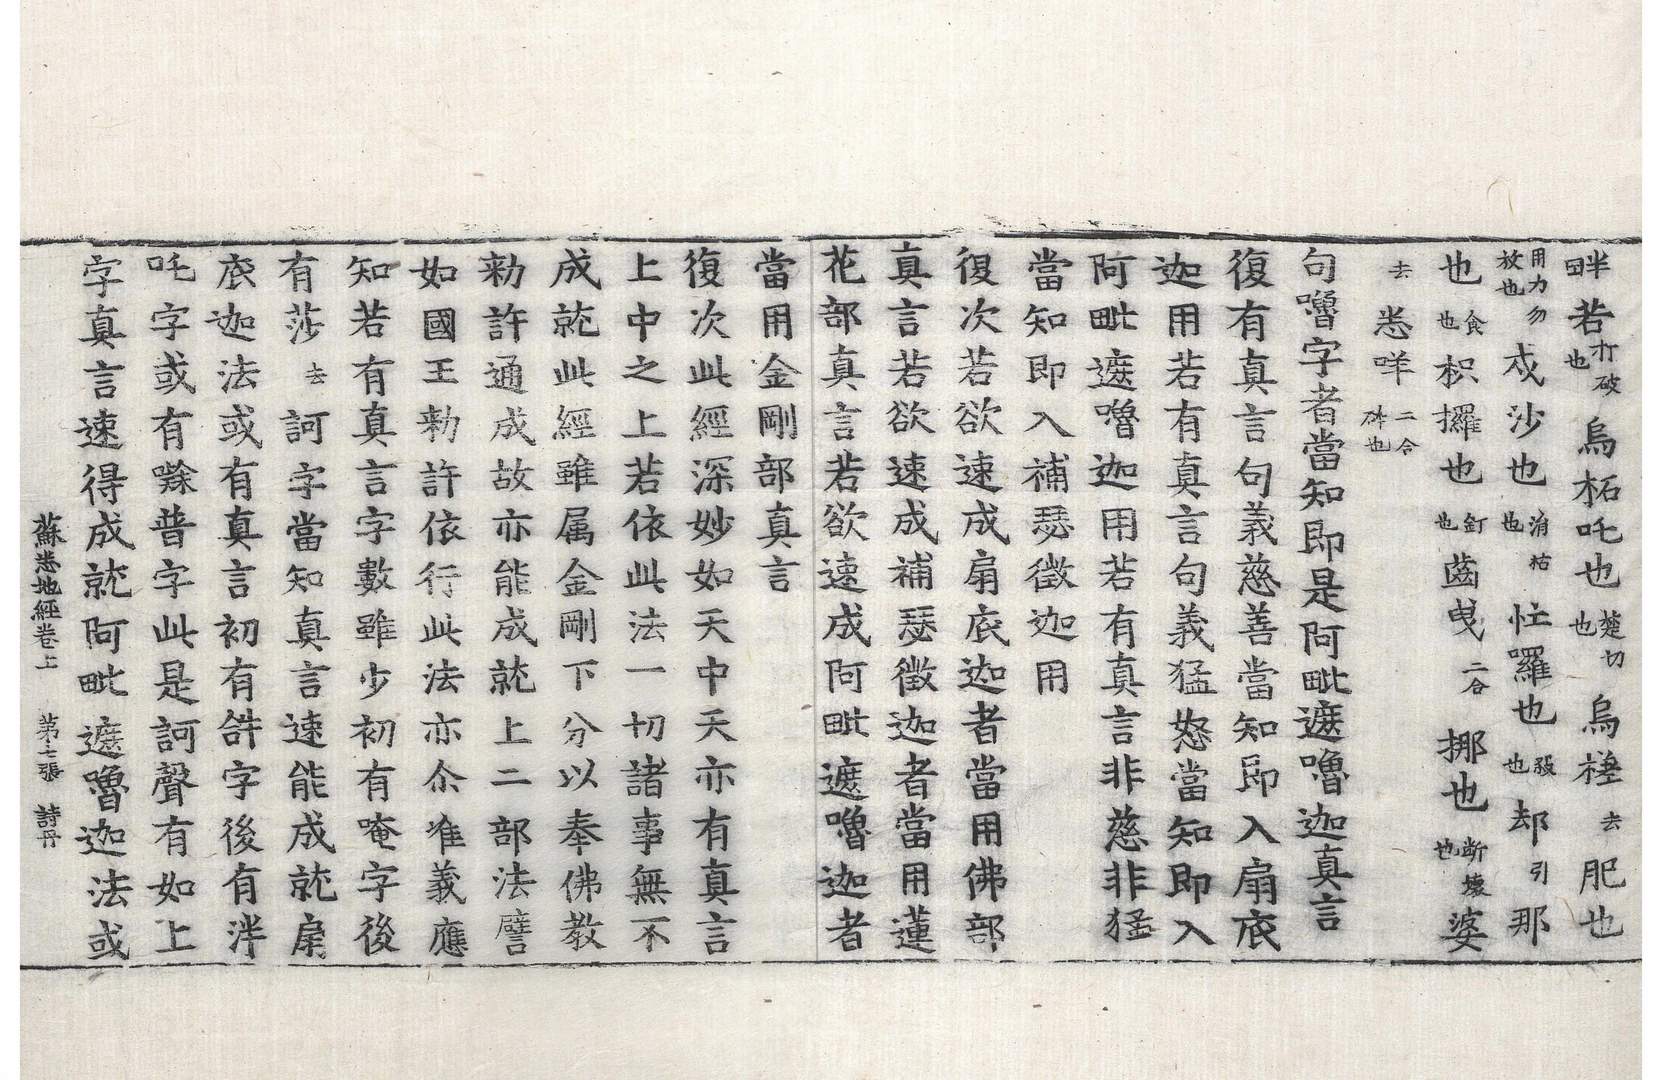 畔若打破也烏柘吒也楚切也烏𣜩去肥也
用力勿放也戍沙也消枯也忙囉也殺也却引那
也食也枳攞也釘也齒曳二合挪也断壞也婆
去岺咩二合碎也
句嚕字者當知即是阿毗遮嚕迦真言
復有真言句義慈善當知即入扇底
迦用若有真言句義猛怒當知即入
阿毗遮嚕迦用若有真言非慈非猛
當知即入補瑟徵迦用
復次若欲速成扇底迦者當用佛部
真言若欲速成補瑟徵迦者當用蓮
花部真言若欲速成阿毗遮嚕迦者
當用金剛部真言
復次此經深妙如天中天亦有真言
上中之上若依此法一切諸事無不
成就此經雖属金剛下分以奉佛教
勑許通成故亦能成就上二部法譬
如國王勑許依行此法亦尒准義應
知若有真言字數雖少初有唵字後
有莎去訶字當知真言速能成就扇
底迦法或有真言初有𤙖字後有泮
吒字或有㗚普字此是訶聲有如上
字真言速得成就阿毗遮嚕迦法或
蘇悉地經卷上 第七張 詩丹